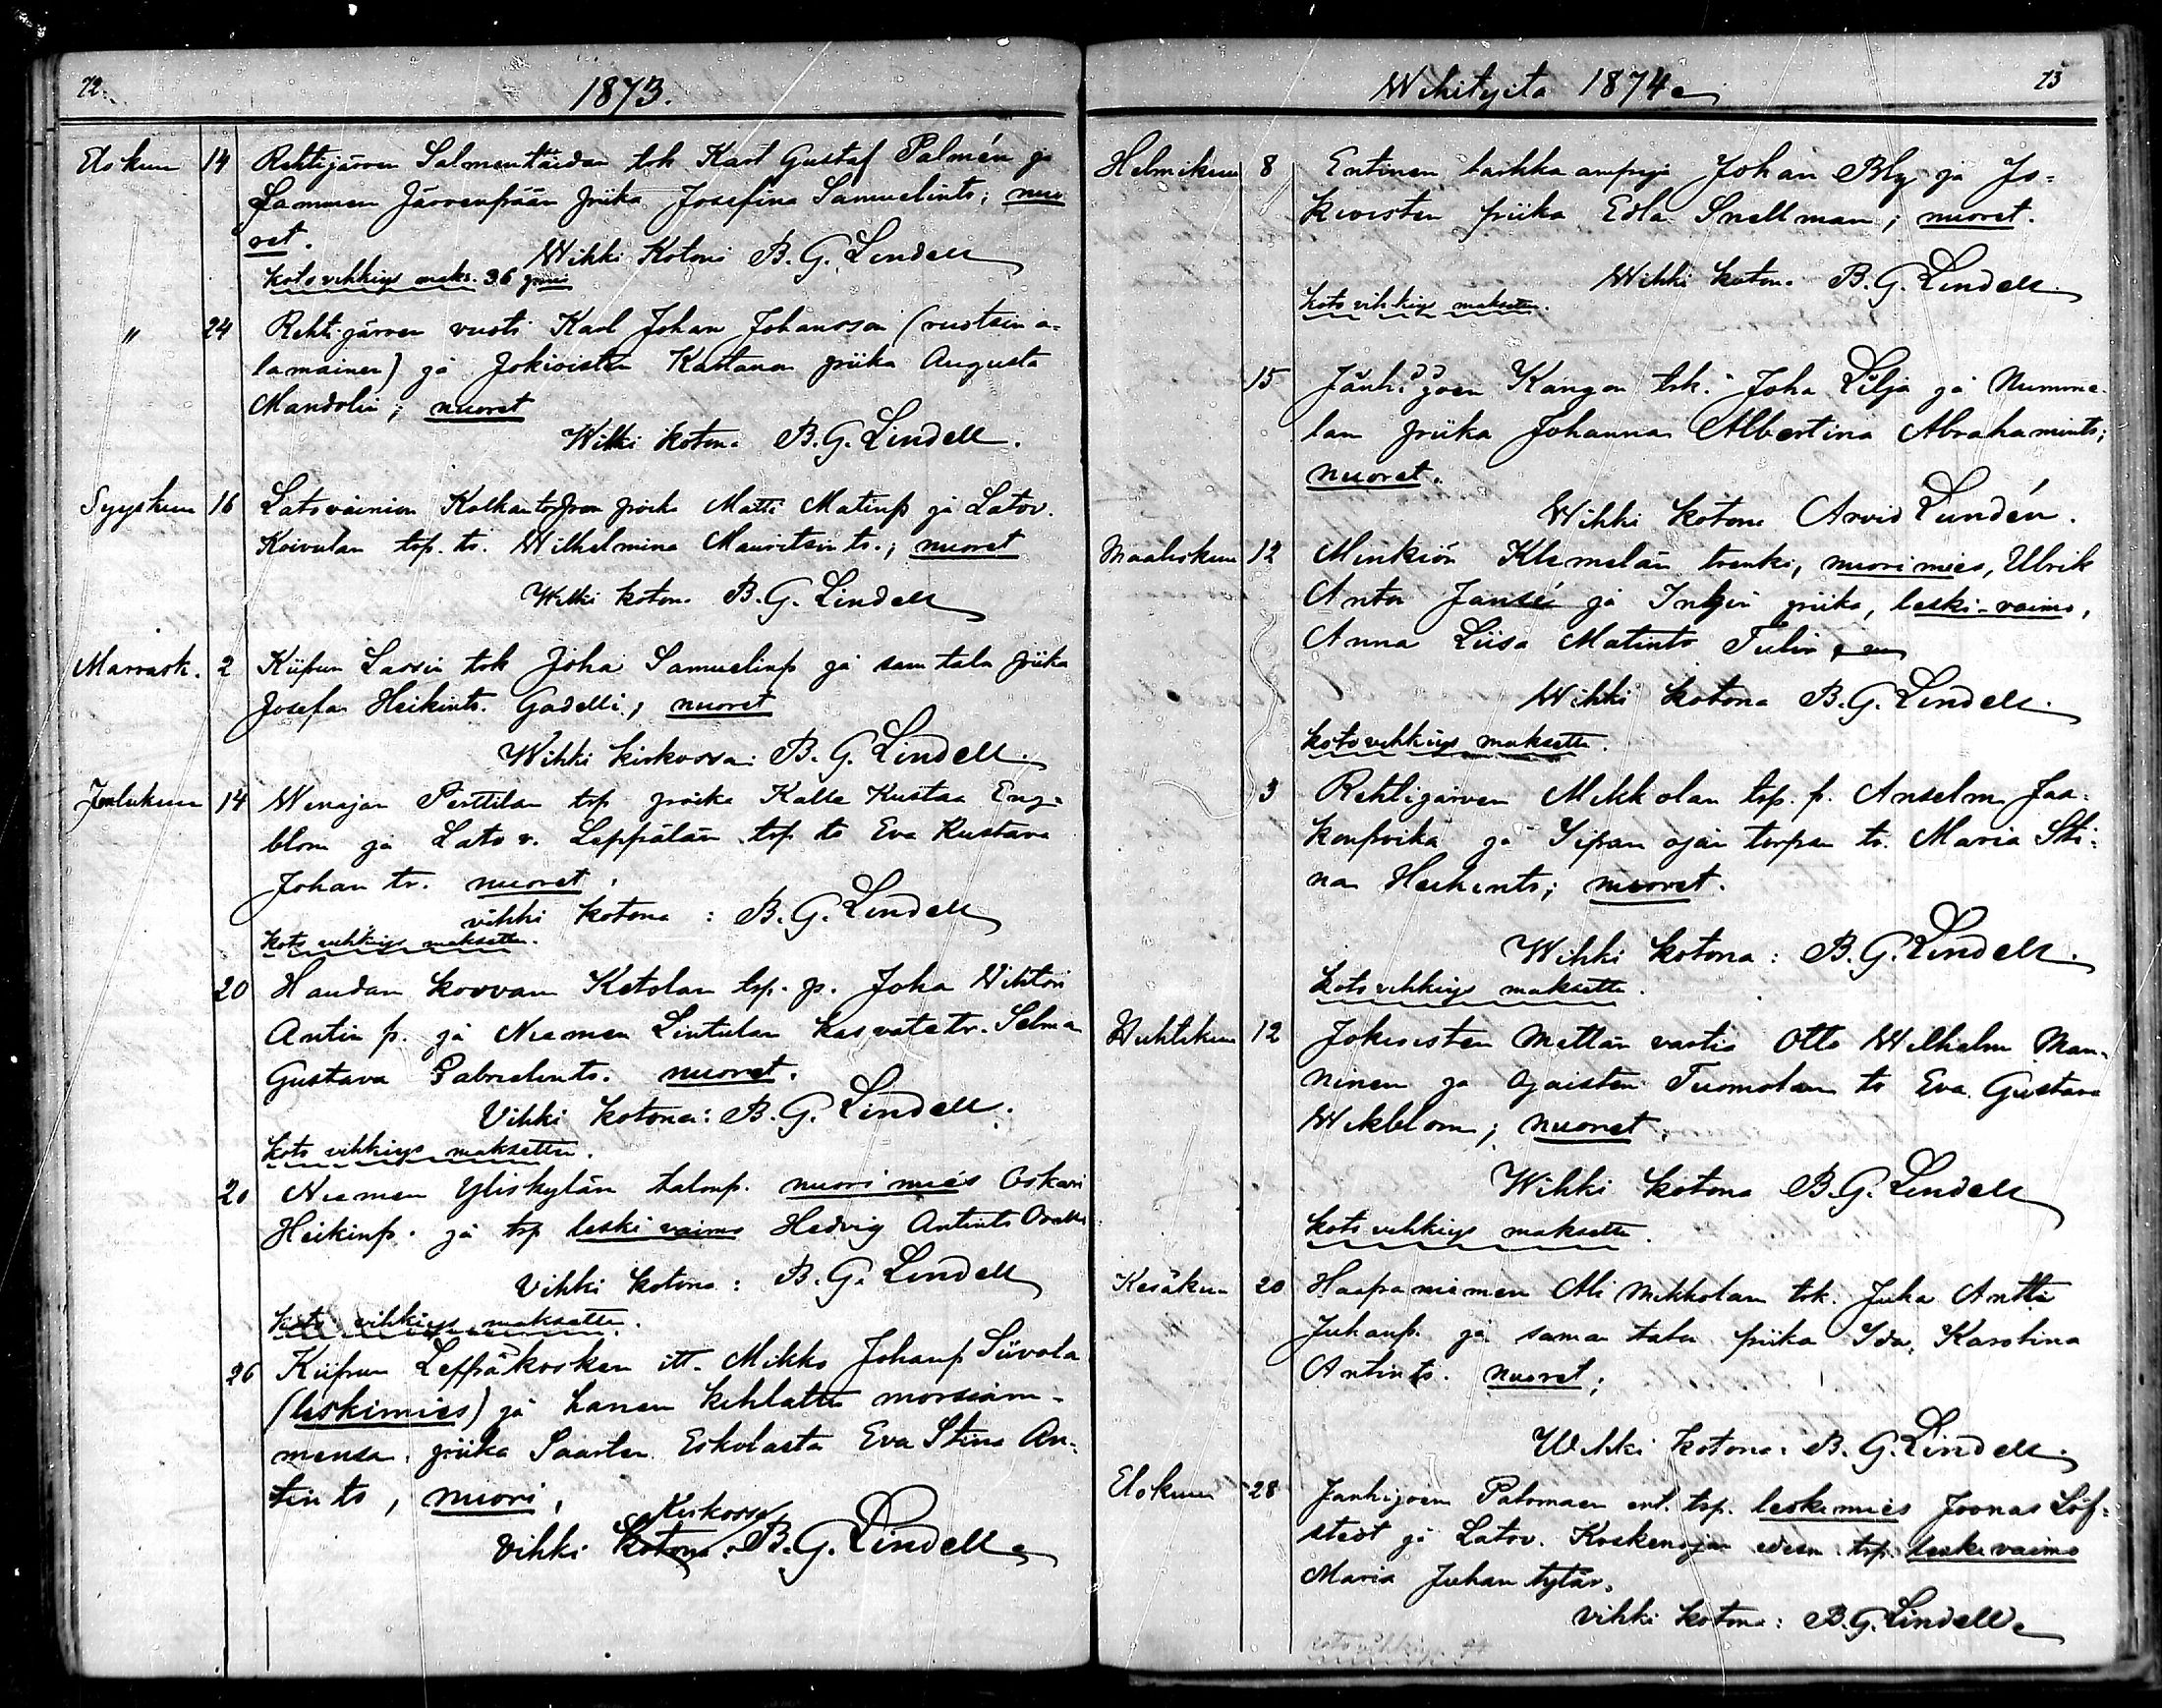 72.
1873.
Elokuun 14 Rehtijärven Salmentaidan tok Karl Gustaf Palmén ja
Lammen Järvenpään piika Josefina Samuelints; nuo
ret.
Wihki Kotona B. G. Lindell
koto vihkiys maks. 36 pni
" 24 Rehtijärven vuoti Karl Johan Johansson (ruotsin a-
lamainen) ja Jokioisten Kartanon piika Augusta
Mandolin; nuoret
Wihki kotona B. G. Lindell.
Syyskuun 16 Latovainion Kalkantorpan poika Matti Matinp ja Latov.
Koivulan trp. tr. Wilhelmina Mauritsin tr.; nuoret
Wihki kotona B. G. Lindell
Marrask. 2 Kiipun Lassin tok Joha Samuelinp ja sam talo piika
Josefa Heikints. Gadelli; nuoret
Wihki kirkossa: B. G. Lindell.
Joulukuun 14 Wenäjän Perttilan trp poika Kalle Kustaa Eng-
blom ja Latov. Leppälän trp tr Eva Kustava
Johan tr. nuoret.
vihki kotona : B. G. Lindell
koto vihkiys maksettu.
20 Haudan korvan Ketolan trp. p. Joha Wihtori
Antin p. ja Niemen Lintulan kasvatetr. Selma
Gustava Gabrielints. nuoret.
Vihki kotona: B. G. Lindell.
koto vihkiys maksettu.
20 Niemen Yliskylän talonp. nuori mies Oskari
Heikinp. ja trp leski vaimo Hedvig Antints
Vihki kotona : B. G. Lindell
koto vihkiys maksettu.
26 Kiipun Leppäkosken itt. Mikko Johanp Siivola
(leskimies) ja hänen kihlattu morsiam-
mensa, piika Saarten Eskolasta Eva Stina An-
tin ts, nuori,
Kirkossa
vihki kotona: B. G. Lindell
Wihityitä 1874
73
Helmikuun 8 Entinen tarkka ampuja Johan Bly ja Jo-
kioisten piika Edla Snellman; nuoret.
Wihki kotona B. G. Lindell
koto vihkiys maksettu.
15 Jänhijoen Kangon tok. Joha Lilja ja Numme-
lan piika Johanna Albertina Abrahamints;
nuoret.
Wihki kotona Arvid Lundén.
Maaliskuun 12 Minkiön Klemelän trenki, nuori mies, Ulrik
Anton Jansén ja Inkin piika, leski-vaimo,
Anna Liisa Matints Tulin
Wihki kotona B. G. Lindell.
koto vihkiys maksettu.
3 Rehtijärven Mikkolan trp. p. Anselm Jaa-
konpoika ja Yipan ojan torpan tr. Maria Sti-
na Heikints; nuoret.
Wihki kotona : B. G. Lindell.
koto vihkiys maksettu.
Huhtikuun 12 Jokioisten Mettän vartia Otto Wilhelm Man-
ninen ja Ojaisten Tuomolan tr Eva Gustava
Wikblom; nuoret.
Wihki kotona B. G. Lindell
koto vihkiys maksettu.
Kesäkuun 20 Haapaniemen Ali Mikkolan tok. Juha Antti
Juhanp. ja saman talon piika Ida Karolina
Antints. nuoret;
Wihki kotona: B. G. Lindell.
Elokuun 28 Janhijoen Palomaen ent. trp. leskimies Joonas Löf-
stedt ja Latov. Koskenojan edesm. trp. leski vaimo
Maria Juhan tytär.
vihki kotona: B. G. Lindell
koto vihkiys